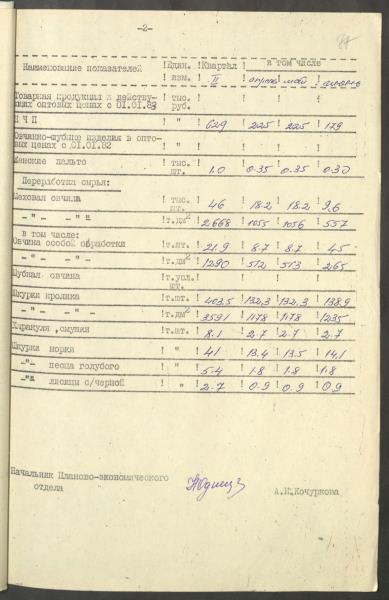 -2-
87
Наименование показателей ! Един. ! Квартал ! в том числе
! изм. ! II ! апрель ! май ! июнь
Товарная продукция в действу- ! тыс. ! ! ! !
ющих оптовых ценах с 01.01.82 ! руб. ! ! ! !
Н Ч П ! " ! 629 ! 225 ! 225 ! 179
Овчинно-шубные изделия в опто-
вых ценах с 01.01.82 ! " ! ! ! !
Женские пальто ! тыс. шт. ! 1.0 ! 0.35 ! 0.35 ! 0.30
Переработка сырья:
Меховая овчина ! тыс. шт. ! 46 ! 18.2 ! 18.2 ! 9.6
-"- -"- ! т.дм2 ! 2668 ! 1055 ! 1056 ! 557
в том числе:
Овчина особой обработки ! т.шт. ! 21.9 ! 8.7 ! 8.7 ! 4.5
-"- -"- ! т.дм2 ! 1290 ! 512 ! 513 ! 265
Шубная овчина ! т.усл. шт. ! ! ! !
Шкурки кролика ! т.шт. ! 403.5 ! 132.3 ! 132.3 ! 138.9
-"- -"- ! т.дм2 ! 3591 ! 1178 ! 1178 ! 1235
Каракуля, смушки ! т.шт. ! 8.1 ! 2.7 ! 2.7 ! 2.7
Шкурки норки ! " ! 41 ! 13.4 ! 13.5 ! 14.1
-"- песца голубого ! " ! 5.4 ! 1.8 ! 1.8 ! 1.8
-"- лисицы с/черной ! " ! 2.7 ! 0.9 ! 0.9 ! 0.9
Начальник Планово-экономического
отдела А.И.Кочуркова